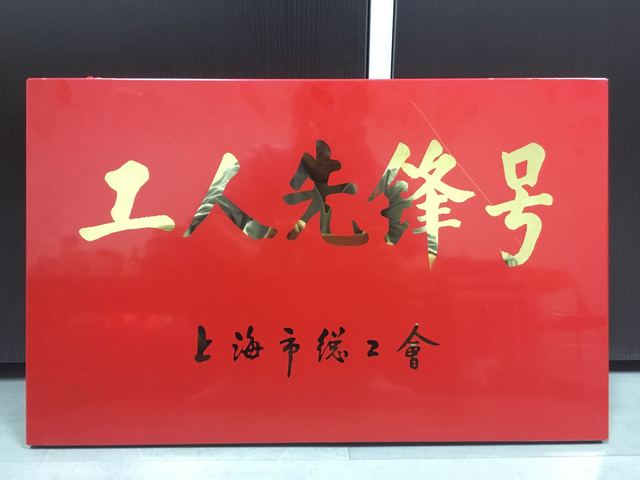 工人先锋号
上海市総工會